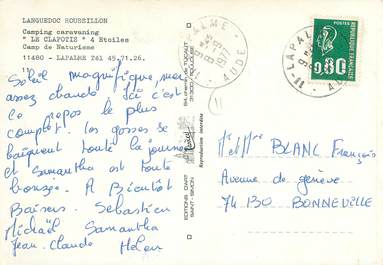 LANGUEDOC ROUSSILLON
Camping caravaning
" LE CLAPOTIS " 4 Etoiles
Camp de Naturisme
11480 - LAPALME Tél 45.71.26.
Soleil magnifique, mer
assez chaude. Ici c'est
le repos le plus
complet. Les gosses se
baignent toute la journée
et Samantha est toute
bronzée. A Bientôt
Baisers. Sébastien
Mickaël Samantha
Jean-Claude Hélène
EDITIONS D'ART
SAINT-SIMON
31300 TOULOUSE
Reproduction interdite
LAPALME
1977
11 AUDE
11
LAPALME
11 AUDE
0,80
REPUBLIQUE FRANÇAISE
POSTES
Mr et Mme BLANC François
Avenue de genève
74130 BONNEVILLE